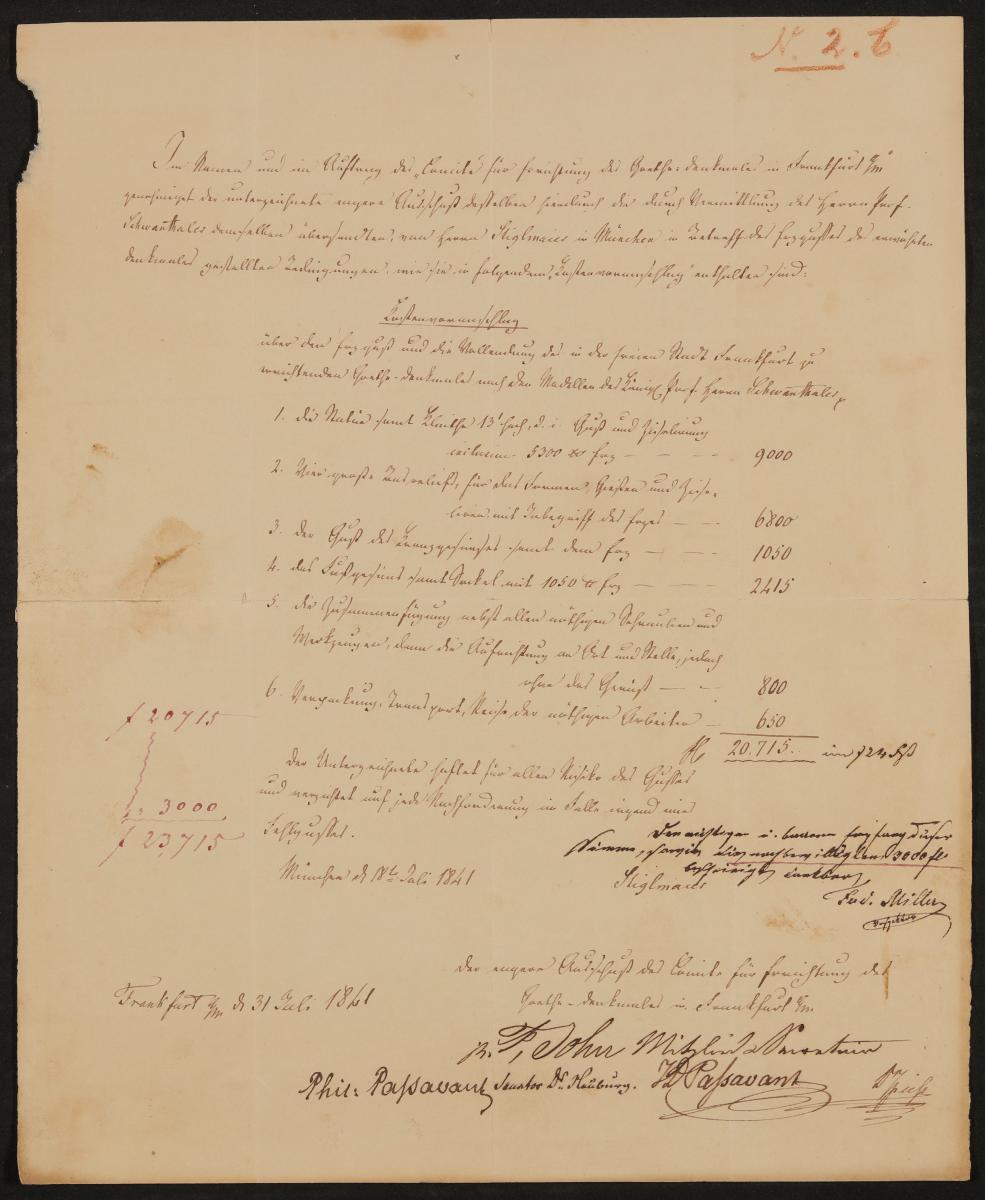 N. 2. b
Im Namen und im Auftrag des „Comité für Errichtung des Goethe-Denkmales in Frankfurt a/m“
genehmiget der unterzeichnete engere Ausschuß desselben hiendurch die durch Vermittlung des Herrn Prof.
Schwanthaler demselben übersandten, von Herrn Stiglmaier in München in Betreff des Erzgusses des erwähnten
Denkmales gestellten Bedingungen, wie sie in folgendem „Kostenvoranschlag“ enthalten sind:
Kostenvoranschlag
über den Erzguß und die Vollendung des in der freien Stadt Frankfurt zu
errichtenden Goethe-Denkmales nach den Modellen des Königl. Prof. Herrn Schwanthaler,
1. die Statue samt Plinthe 13' hoch, d. i. Guß und Ziselirung
inclusive 5300 ℔ Erz — — — 9000
2. Vier große Basreliefs, für das Formen, Gießen und Zise-
liren mit Inbegriff des Erzes — — 6800
3. der Guß des Kranzgesimses samt dem Erz — — 1050
4. das Fußgesims samt Sockel mit 1050 ℔ Erz — — 2415
5. die Zusammenfügung nebst allen nöthigen Schrauben und
Werkzeugen, dann die Aufrichtung an Ort und Stelle, jedoch
ohne das Gerüst — — 800
6. Verpackung, Transport, Reise der nöthigen Arbeiter — 650
fl 20.715.. im f 24 Fß
f 20715
3000
f 23,715
Der Unterzeichnete haftet für allen Risiko des Gusses
und verzichtet auf jede Nachforderung im Falle irgend eines
Fehlgusses.
München d 18ten Juli 1841
Stiglmaier
Den richtigen u. baaren Empfang dieser
Summe, sowie der nachbewilligten 3000 fl
bescheinigt dankbar,
Ferd. Miller
Inspektor
Der engere Ausschuß des Comite für Errichtung des
Goethe-Denkmales in Frankfurt a/m
Frankfurt a/m d 31 Juli 1841
P. John Mitglied & Secretair
Phil: Paſsavant Senator Dr. Neuburg. JD Paſsavant